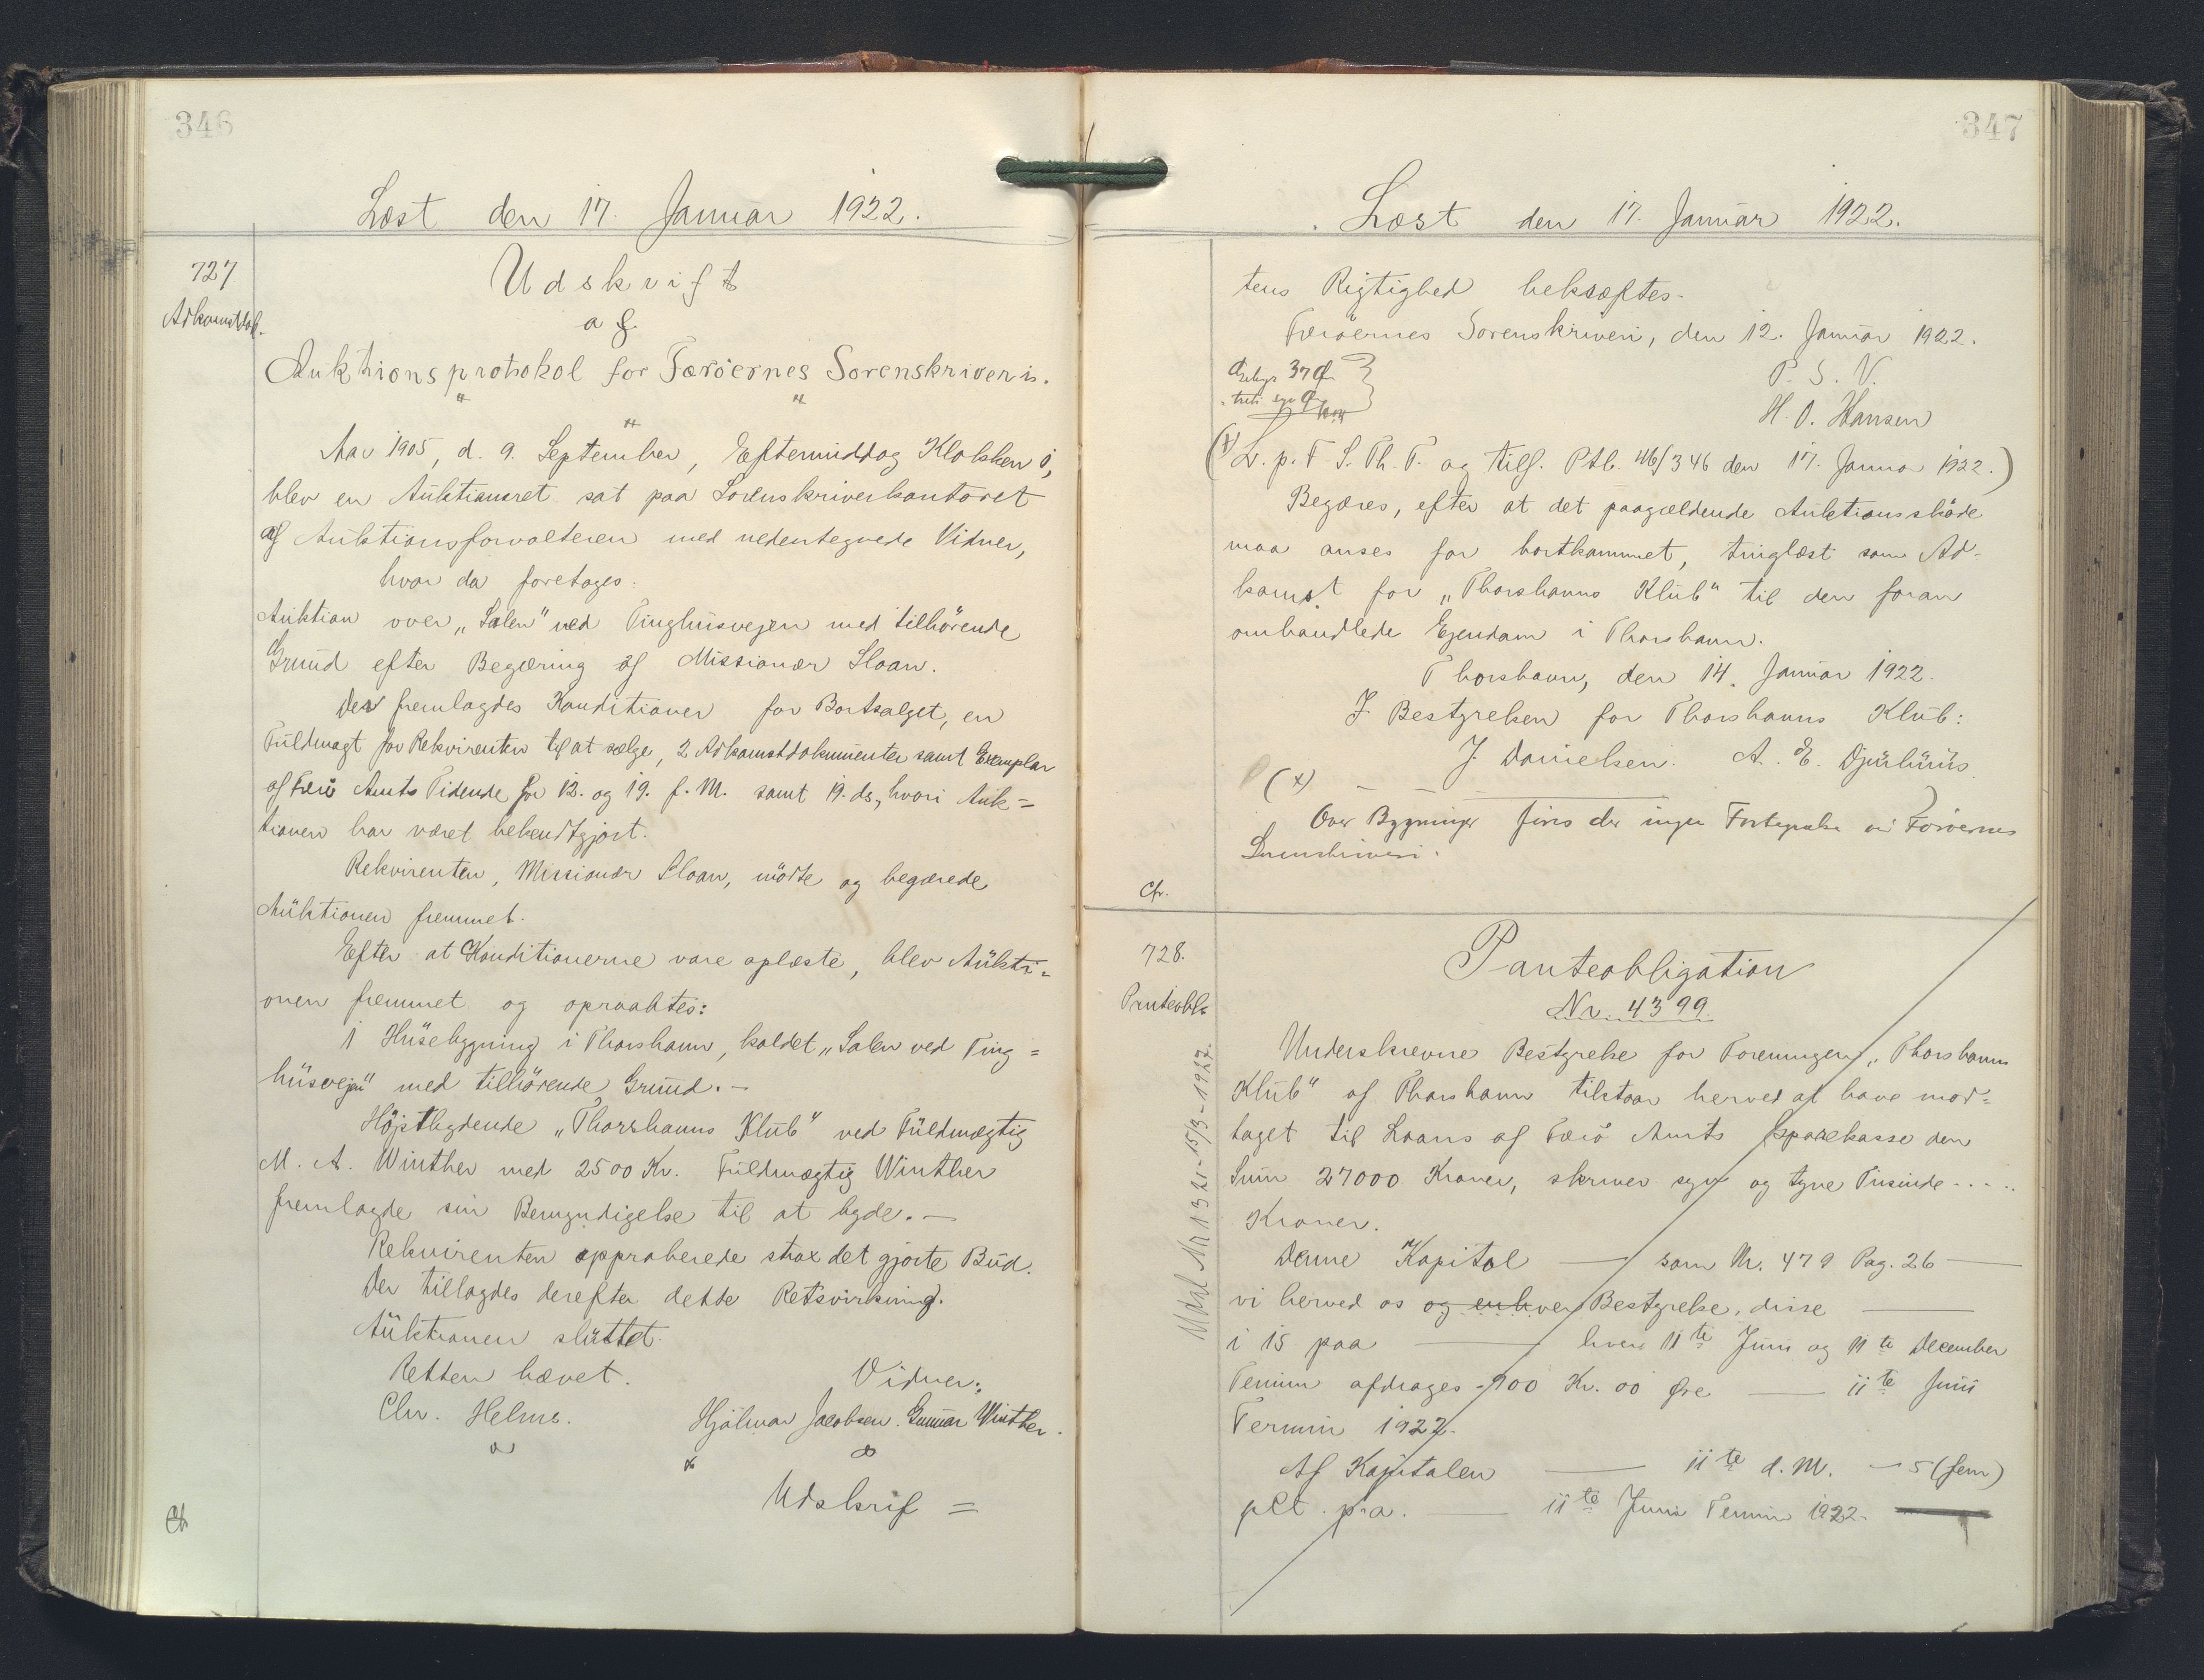 346
Læst den 17. Januar 1922.
727
Adkomstdok.
Udskrift
af
Auktionsprotokol for Færöernes Sorenskriveri.
Aar 1905, d. 9. September, Eftermiddag Klokken 6,
blev en Auktionsret sat paa Sorenskriverkontoret
af Auktionsforvalteren med nedentegnede Vidner,
hvor da foretoges:
Auktion over "Salen" ved Tinghusvejen med tilhörende
Grund efter Begæring af Missionær Sloan.
Der fremlagdes Konditioner for Bortsalget, en
Fuldmagt for Rekvirenten til at sælge, 2 Adkomstdokumenter samt Exemplar
af Færö Amts Tidende for 12. og 19. f. M. samt 19. ds., hvori Auk=
tionen har været bekendtgjort.
Rekvirenten, Missionær Sloan, mödte og begærede
Auktionen fremmet.
Efter at Konditionerne vare oplæste, blev Aukti=
onen fremmet og opraabtes:
1 Husebygning i Thorshavn, kaldet "Salen ved Ting=
husvejen" med tilhörende Grund. —
Höjstbydende "Thorshavns Klub" ved Fuldmægtig
M. A. Winther med 2500 Kr. Fuldmægtig Winther
fremlagde sin Bemyndigelse til at byde. —
Rekvirenten approberede strax det gjorte Bud.
Der tillagdes derefter dette Retsvirkning.
Auktionen sluttet.
Retten hævet.
Vidner:
Chr. Helms. Hjálmar Jacobsen. Gunnar Winther.
Udskrif =
347
Læst den 17. Januar 1922.
tens Rigtighed bekræftes.
Færöernes Sorenskriveri, den 12. Januar 1922.
P. S. V.
H. O. Hansen
(x) L. p. F. S. Th. T. og tilf. Ptb. 46/346 den 17. Januar 1922.)
Begæres, efter at det paagældende Auktionsskøde
maa anses for bortkommet, tinglæst som Ad-
komst for "Thorshavns Klub" til den foran
omhandlede Ejendom i Thorshavn.
Thorshavn, den 14. Januar 1922.
I Bestyrelsen for Thorshavns Klub:
J. Danielsen. A. E. Djurhuus.
(x)
Over Bygninger fins der ingen Fortegnelse ved Færöernes
Sorenskriveri.
728.
Panteobl.
Panteobligation
Nr. 4399.
Underskrevne Bestyrelse for Foreningen "Thorshavns
Klub" af Thorshavn tilstaar herved at have mod=
taget til Laans af Færö Amts Sparekasse den
Sum 27000 Kroner, skriver syv og tyve Tusinde....
Kroner.
Denne Kapital — som Nr. 479 Pag. 26 —
vi herved os og enhver Bestyrelse, disse —
i 15 paa — hver 11te Juni og 11te December
Termin afdrages 900 Kr. 00 Øre — 11te Juni
Termin 1922.
Af Kapitalen — 11te d. M. — 5 (fem)
pCt. p. a. — 11te Juni Termin 1922. —